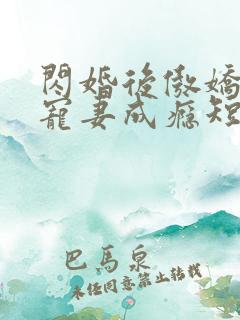 閃婚後傲嬌
寵妻成癮短
巴馬泉
未經同意禁止轉載